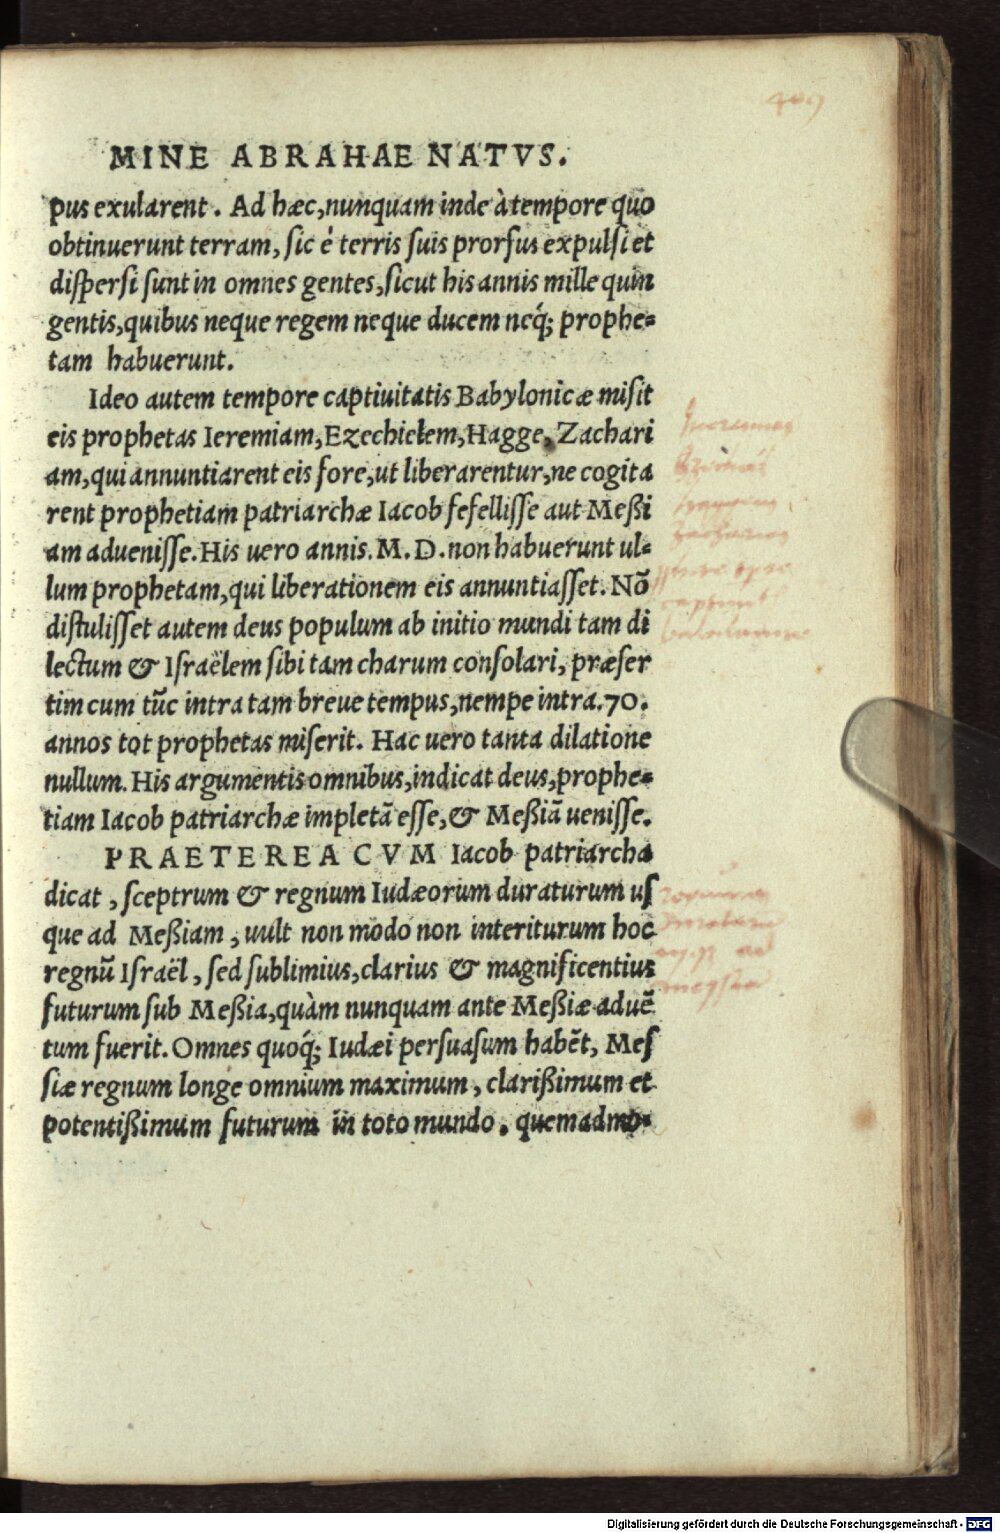 409
MINE ABRAHAE NATVS.
pus exularent. Ad hæc, nunquam inde à tempore quo
obtinuerunt terram, sic è terris suis prorsus expulsi et
dispersi sunt in omnes gentes, sicut his annis mille quin
gentis, quibus neque regem neque ducem neq́; prophe=
tam habuerunt.
Ideo autem tempore captiuitatis Babylonicæ misit
eis prophetas Ieremiam, Ezechielem, Hagge, Zachari
am, qui annuntiarent eis fore, ut liberarentur, ne cogita
rent prophetiam patriarchæ Iacob fefellisse aut Meßi
am aduenisse. His uero annis. M. D. non habuerunt ul=
lum prophetam, qui liberationem eis annuntiasset. Nõ
distulisset autem deus populum ab initio mundi tam di
lectum & Israëlem sibi tam charum consolari, præser
tim cum tũc intra tam breue tempus, nempe intra. 70.
annos tot prophetas miserit. Hac uero tanta dilatione
nullum. His argumentis omnibus, indicat deus, prophe=
tiam Iacob patriarchæ impletã esse, & Meßiã uenisse.
PRAETEREA CVM Iacob patriarcha
dicat, sceptrum & regnum Iudæorum duraturum us
que ad Meßiam, uult non modo non interiturum hoc
regnũ Israël, sed sublimius, clarius & magnificentius
futurum sub Meßia, quàm nunquam ante Meßiæ aduẽ
tum fuerit. Omnes quoq́; Iudæi persuasum habẽt, Mes
siæ regnum longe omnium maximum, clarißimum et
potentißimum futurum in toto mundo. quemadmo=
Digitalisierung gefördert durch die Deutsche Forschungsgemeinschaft - DFG